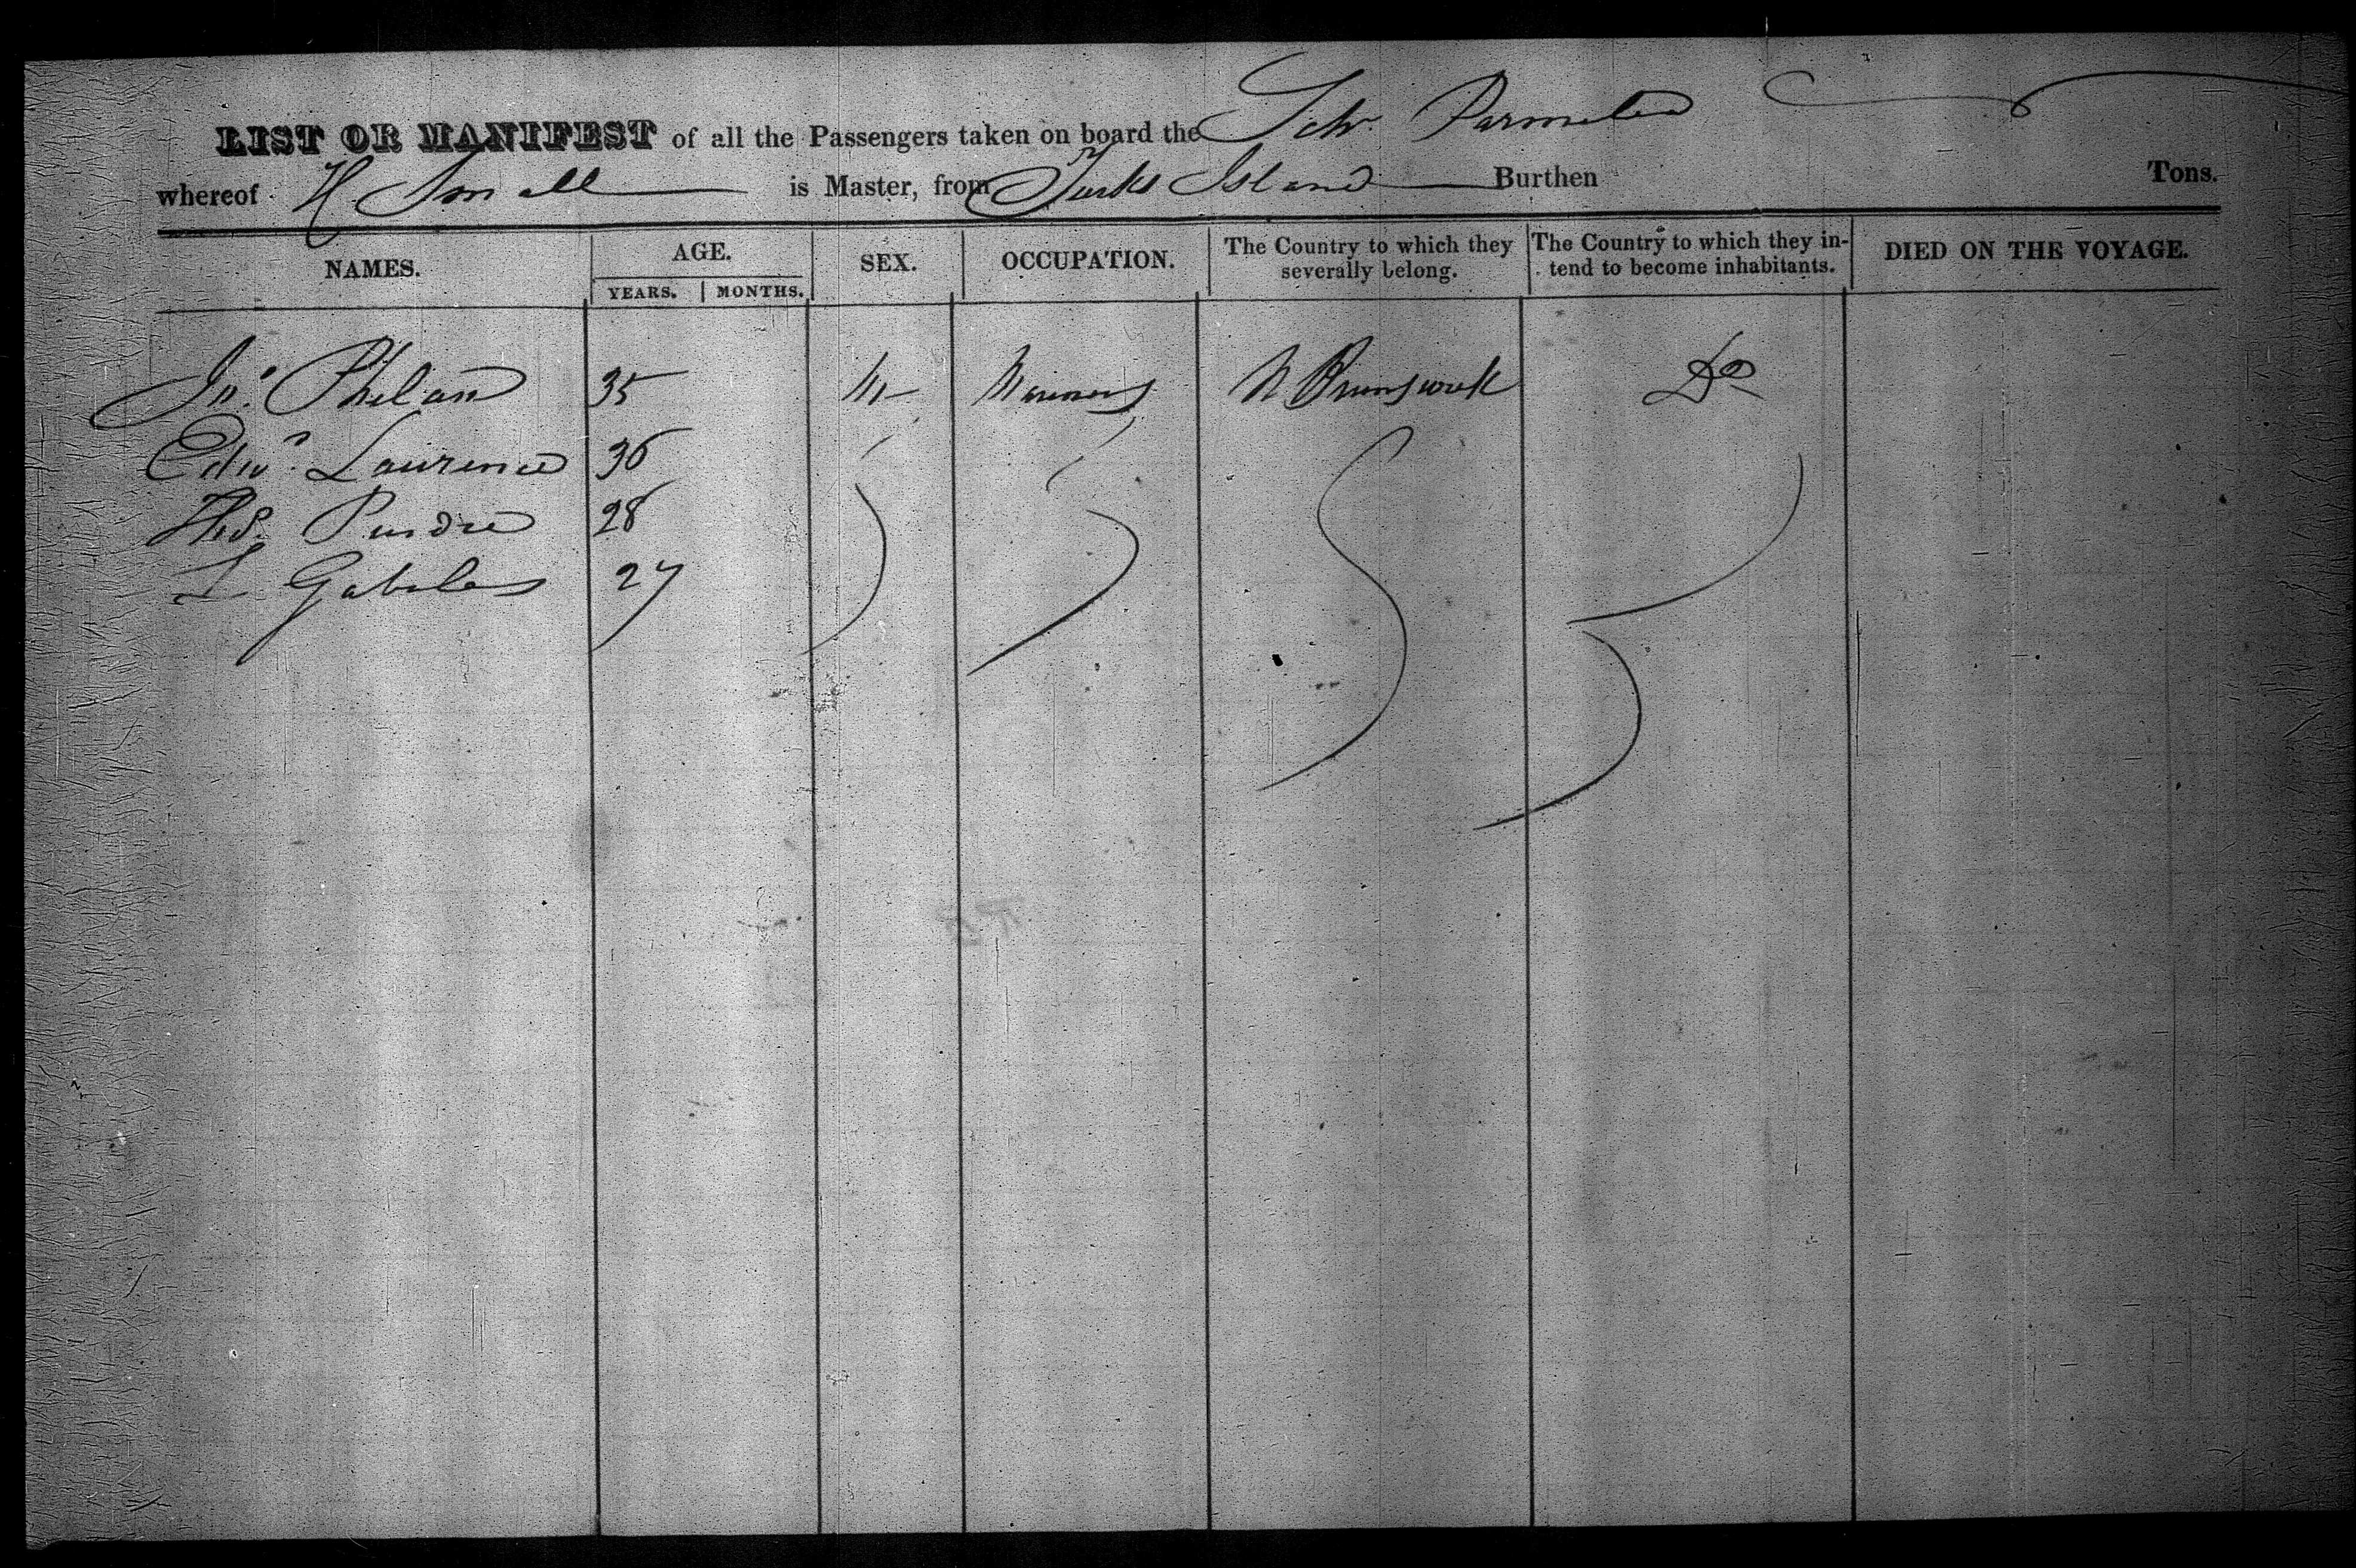 LIST OR MANIFEST of all the Passengers taken on board the Schr. Parmelia
whereof H Small is Master, from Turks Island Burthen Tons.
NAMES. AGE. YEARS. MONTHS. SEX. OCCUPATION. The Country to which they severally belong. The Country to which they intend to become inhabitants. DIED ON THE VOYAGE.
Jno. Phelan 35 M Mariners N Brunswick Do
Edwd. Laurence 36
Thos. Purdie 28
L 27